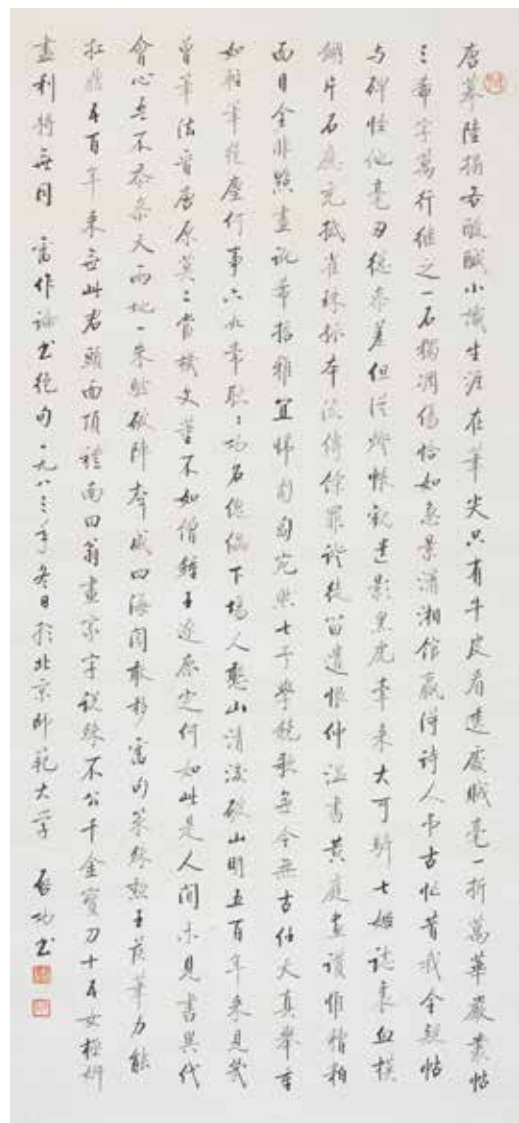 唐摹陸搨各酸鹹小識生涯在筆尖只有牛皮看透處賊毫一折萬華嚴叢帖
三希字萬行継之一石獨凋傷恰如急景瀟湘館贏得詩人弔古忙昔我全疑帖
与碑怪他毫刃總參差但從燈帳觀遺影黑虎牽來大可騎七姬誌裏血模
糊片石應充抵雀珠孤本流傳餘罪證徒留遺恨仲温書黄庭畫讚惟糟粕
面目全非點畫訛希哲雅宜歸匍匐宛然七子學鐃歌無今無古任天真舉重
如輕筆絶塵何事六如常耿耿功名傀儡下場人憨山清後破山明五百年來見幾
曾筆法晉唐原莫二當機文董不如僧鍾王逐鹿定何如此是人間未見書異代
會心吾不忝參天兩地一朱駼破陣聲威四海聞敢移舊句策殊勲王侯筆力能
扛鼎五百年來無此君頭面頂禮南田翁畫家字説殊不公千金寶刀十五女極妍
盡利將無同 舊作論書絶句一九八三年冬日於北京師範大学 啟功書